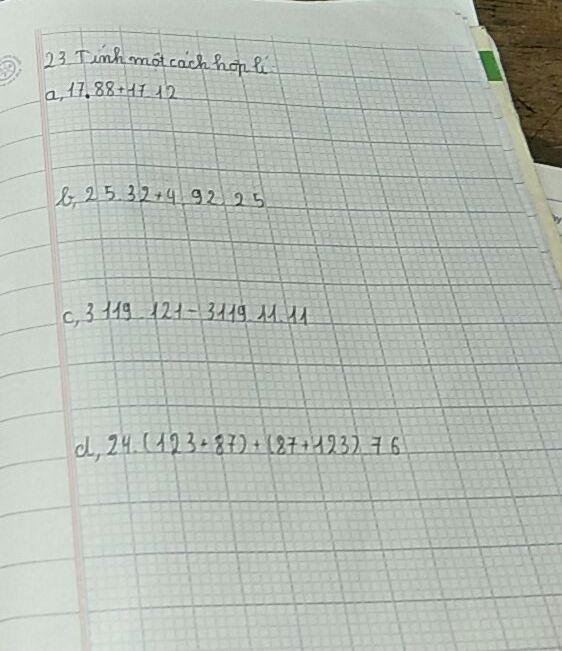 23 Tính một cách hợp lí.
a, 17.88+17.12
b, 25.32+4.92.25
c, 3119.121-3119.11.11
d, 24.(123+87)+(87+123).76